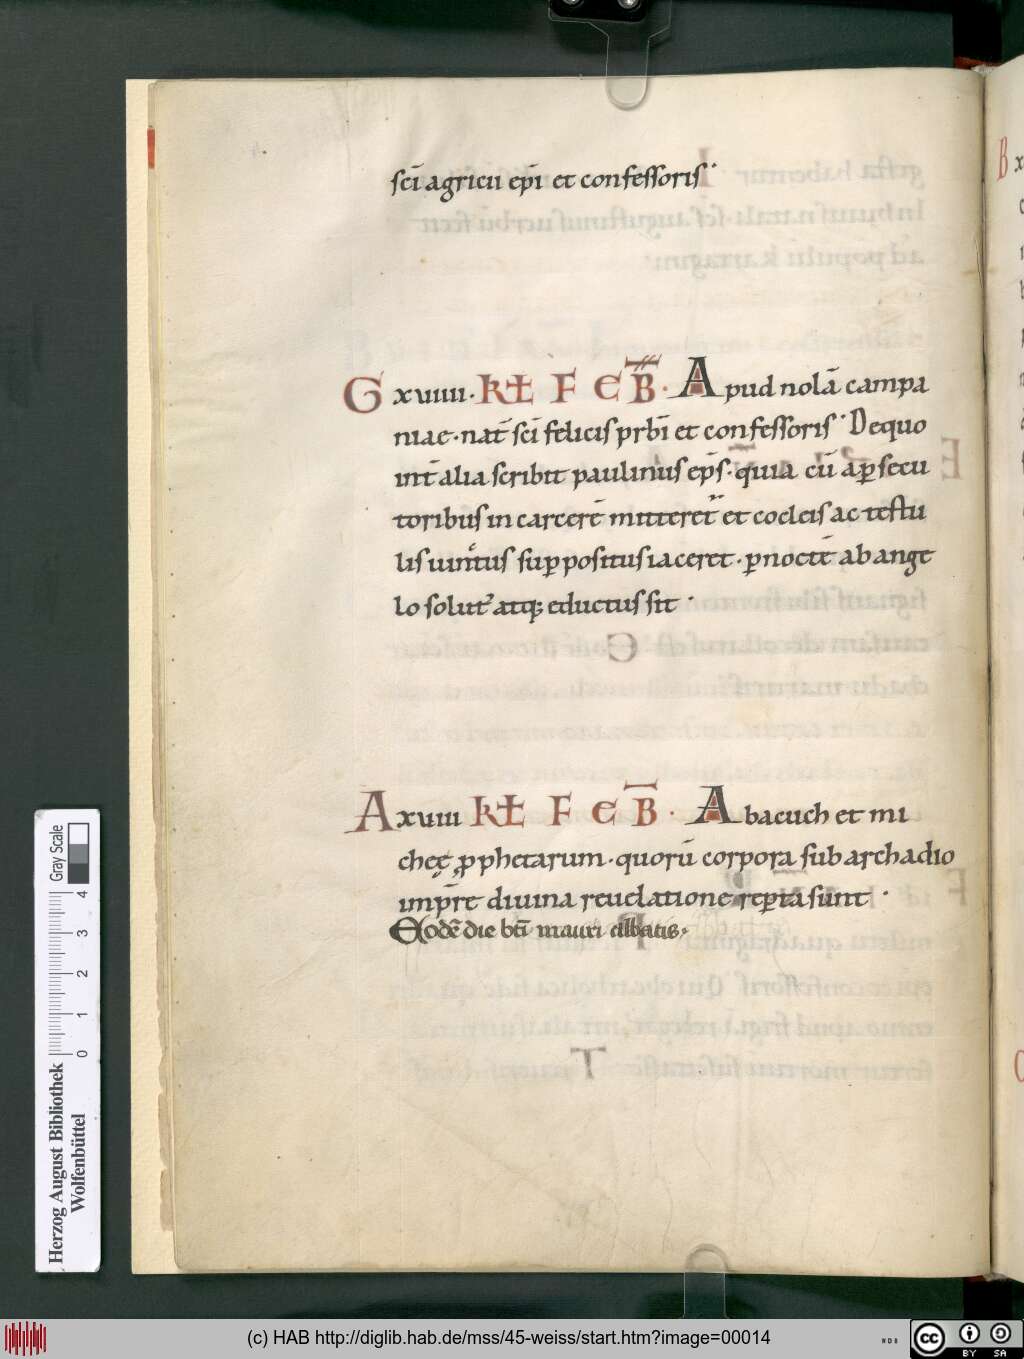 scī agricii epī et confessoris·
G xviiii· kł FEB̅· Apud nolā campa
niae· nat̄ scī felicis prb̄i et confessoris· De quo
int̄ alia scribit paulinus ep̄s· quia cū a ꝑsecu
toribus in carcerē mitteret᷑ et cocleis ac testu
lis vinctus suꝑpositus iaceret· ꝑ nocte ab ange
lo solut᷑ atq; eductus sit·
A xviiii kł FEB̅· Abacuch et mi
cheę ꝓphetarum· quorū corpora sub archadio
imp̄re divina revelatione reꝑta sunt·
Eodē die bt̄i mauri abbatis·
Gray Scale
4 3 2 1 0
Herzog August Bibliothek
Wolfenbüttel
(c) HAB http://diglib.hab.de/mss/45-weiss/start.htm?image=00014
WDB
cc BY SA